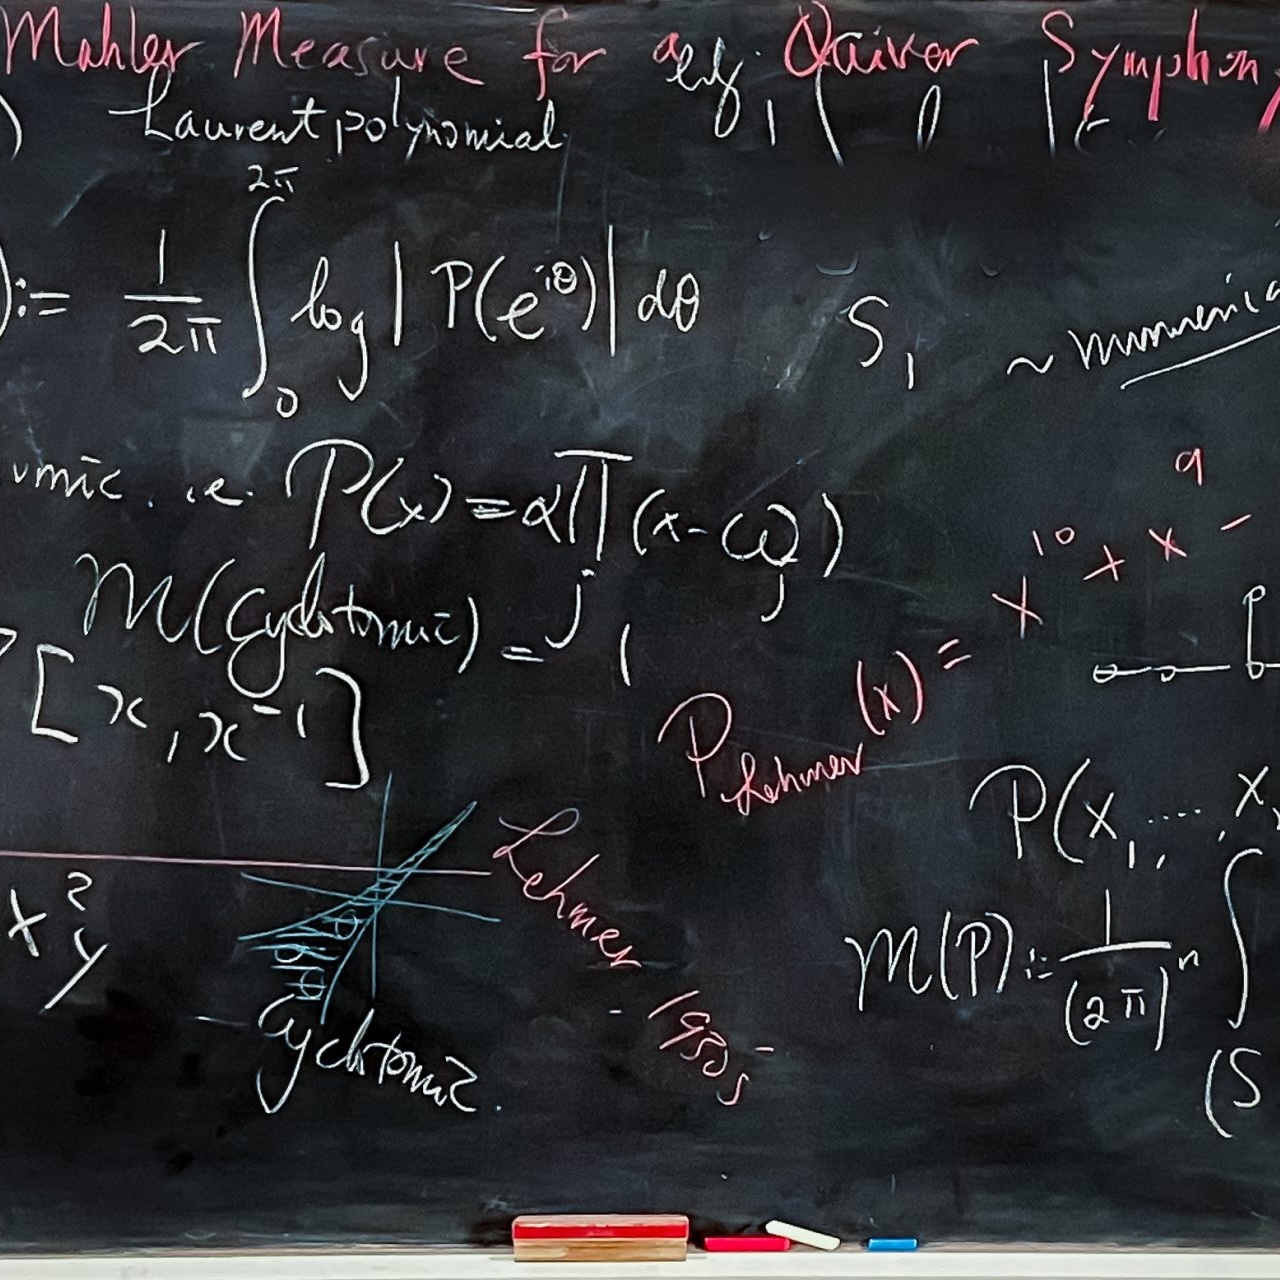 Mahler Measure for a Quiver Symphony
) Laurent polynomial
):= 1/2π ∫_0^{2π} log | P(e^{iθ}) | dθ
S_1 ~ numerica
omic. i.e. P(x) = α ∏_j (x - ω_j)
M(Cyclotomic) = 1
[x, x^{-1}]
P_Lehmer(x) = x^{10} + x^9 -
P(x_1, .... x
x^2 y
Lehmer
- 1930s
M(P) := 1/(2π)^n ∫
(S
Cyclotomic.